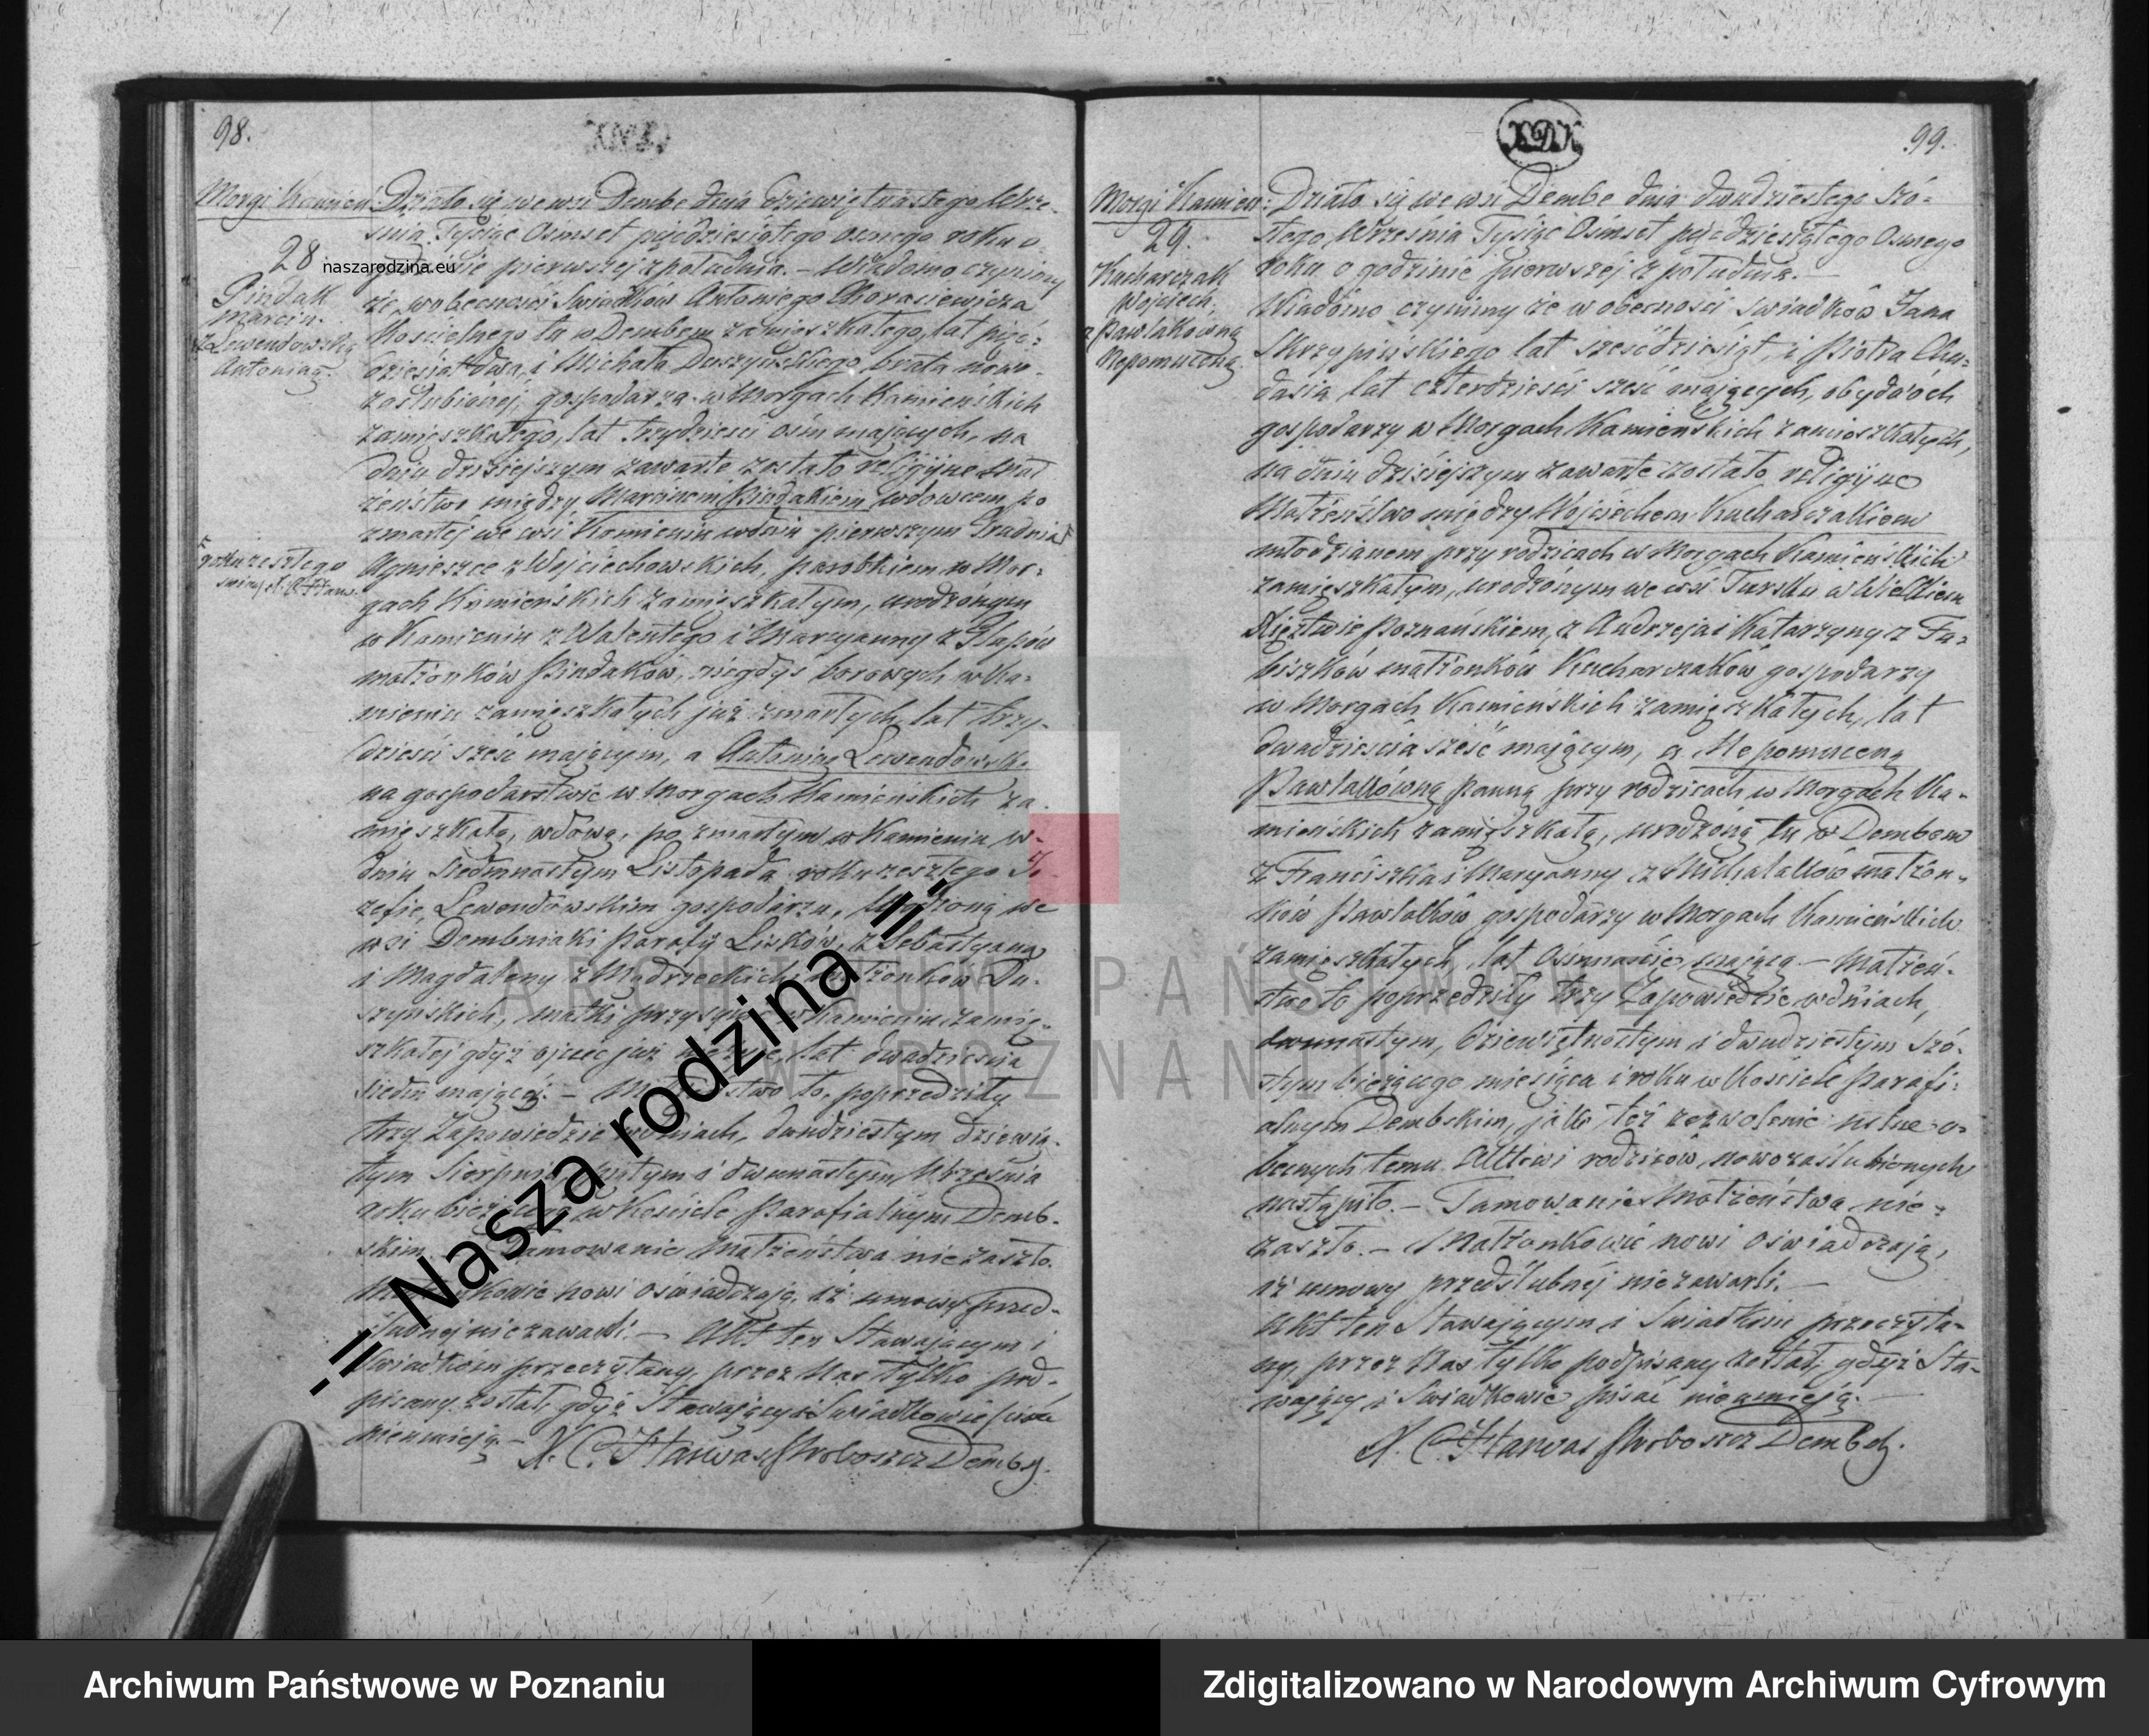 98.
Morgi Kamień:
28
Pindak
Marcin.
z Lewendowską
Antoniną.
Działo się we wsi Dembe dnia dziewiętnastego Wrze-
śnia Tysiąc Osmset pięćdziesiątego osmego roku o
godzinie pierwszej z południa. – Wiadomo czyniemy
że w obecności Świadków Antoniego
Kościelnego tu w Dembem zamieszkałego, lat pięć-
dziesiąt dwa, i Michała Duszyńskiego brata nowo-
zaślubionej, gospodarza w Morgach Kamieńskich
zamieszkałego, lat trzydzieści ośm mających, na
dniu dzisiejszym zawarte zostało religijne Mał
żeństwo między Marcinem Pindakiem wdowcem po
zmarłej we wsi Kamieniu w dniu pierwszym Grudnia
roku zeszłego
Agnieszce z Wojciechowskich, parobkiem w Mor-
gach Kamieńskich zamieszkałym, urodzonym
w Kamieniu z Walentego i Maryanny z
małżonków Pindaków, niegdyś borowych w Ka-
mieniu zamieszkałych już zmarłych, lat trzy-
dzieści sześć mającym, a Antoniną Lewendowską
na gospodarstwie w Morgach Kamieńskich za-
mieszkałą, wdową, po zmarłym w Kamieniu w
dniu siedmnastym Listopada roku zeszłego Jó-
zefie Lewendowskim gospodarzu, urodzoną we
wsi Dembniaki parafii Lisków, z Sebastyana
i Magdaleny z Mądrzeckich małżonków Du-
szyńskich, matki przy w Kamieniu zamie-
szkałej gdyż ojciec już nieżyje, lat dwadzieścia
siedm mającą. – Małżeństwo to, poprzedziły
trzy Zapowiedzie w dniach, dwudziestym dziewią-
tym Sierpnia, piątym i dwunastym Września
roku bieżącego w Kościele Parafialnym Demb-
skim. – Tamowanie Małżeństwa niezaszło.
Małżonkowie nowi oświadczają, iż umowy przed-
ślubnej niezawarli. – Akt ten Stawającym i
Świadkom przeczytany, przez Nas tylko pod-
pisany został, gdyż Stawający i Świadkowie pisać
nieumieją. – X. C. Stawas Proboszcz Dembs.
99.
Morgi Kamień:
29.
Kucharczak
Wojciech,
z Pawlakówną
Nepomuceną.
Działo się we wsi Dembe dnia dwudziestego szó-
stego Września Tysiąc Osmset pięćdziesiątego Osmego
roku o godzinie pierwszej z południa. –
Wiadomo czynimy że w obecności świadków Jana
Skrzypińskiego lat sześćdziesiąt, i Piotra Chu-
dasia lat czterdzieści sześć mających, obydwóch
gospodarzy w Morgach Kamieńskich zamieszkałych,
na dniu dzisiejszym zawarte zostało religijne
Małżeństwo między Wojciechem Kucharczakiem
młodzianem przy rodzicach w Morgach Kamieńskich
zamieszkałym, urodzonym we wsi Tursku w Wielkiem
Księztwie Poznańskiem, z Andrzeja i Katarzyny z Fa-
biszków małżonków Kucharczaków gospodarzy
w Morgach Kamieńskich zamieszkałych, lat
dwadzieścia sześć mającym, a Nepomuceną
Pawlakówną panną przy rodzicach w Morgach Ka-
mieńskich zamieszkałą, urodzoną tu w Dembem
z Franciszka i Maryanny z Michalaków małżon-
ków Pawlaków gospodarzy w Morgach Kamieńskich
zamieszkałych, lat ośmnaście mającą. – Małżeń-
stwo to poprzedziły trzy Zapowiedzie w dniach,
dwunastym, dziewiętnastym i dwudziestym szó-
stym bieżącego miesiąca i roku w Kościele Parafi-
alnym Dembskim, jako też zezwolenie ustne o-
becnych temu Aktowi rodziców nowozaślubionych
nastąpiło. – Tamowanie Małżeństwa nie-
zaszło. – Małżonkowie nowi oświadczają,
iż umowy przedślubnej niezawarli. –
Akt ten Stawającym i Świadkom przeczyta-
ny, przez Nas tylko podpisany został, gdyż Sta-
wający i Świadkowie pisać nieumieją. –
X. C. Stawas Proboszcz Dembs.
naszarodzina.eu
-=| Nasza rodzina |=-
ARCHIWUM PAŃSTWOWE
W POZNANIU
Archiwum Państwowe w Poznaniu
Zdigitalizowano w Narodowym Archiwum Cyfrowym